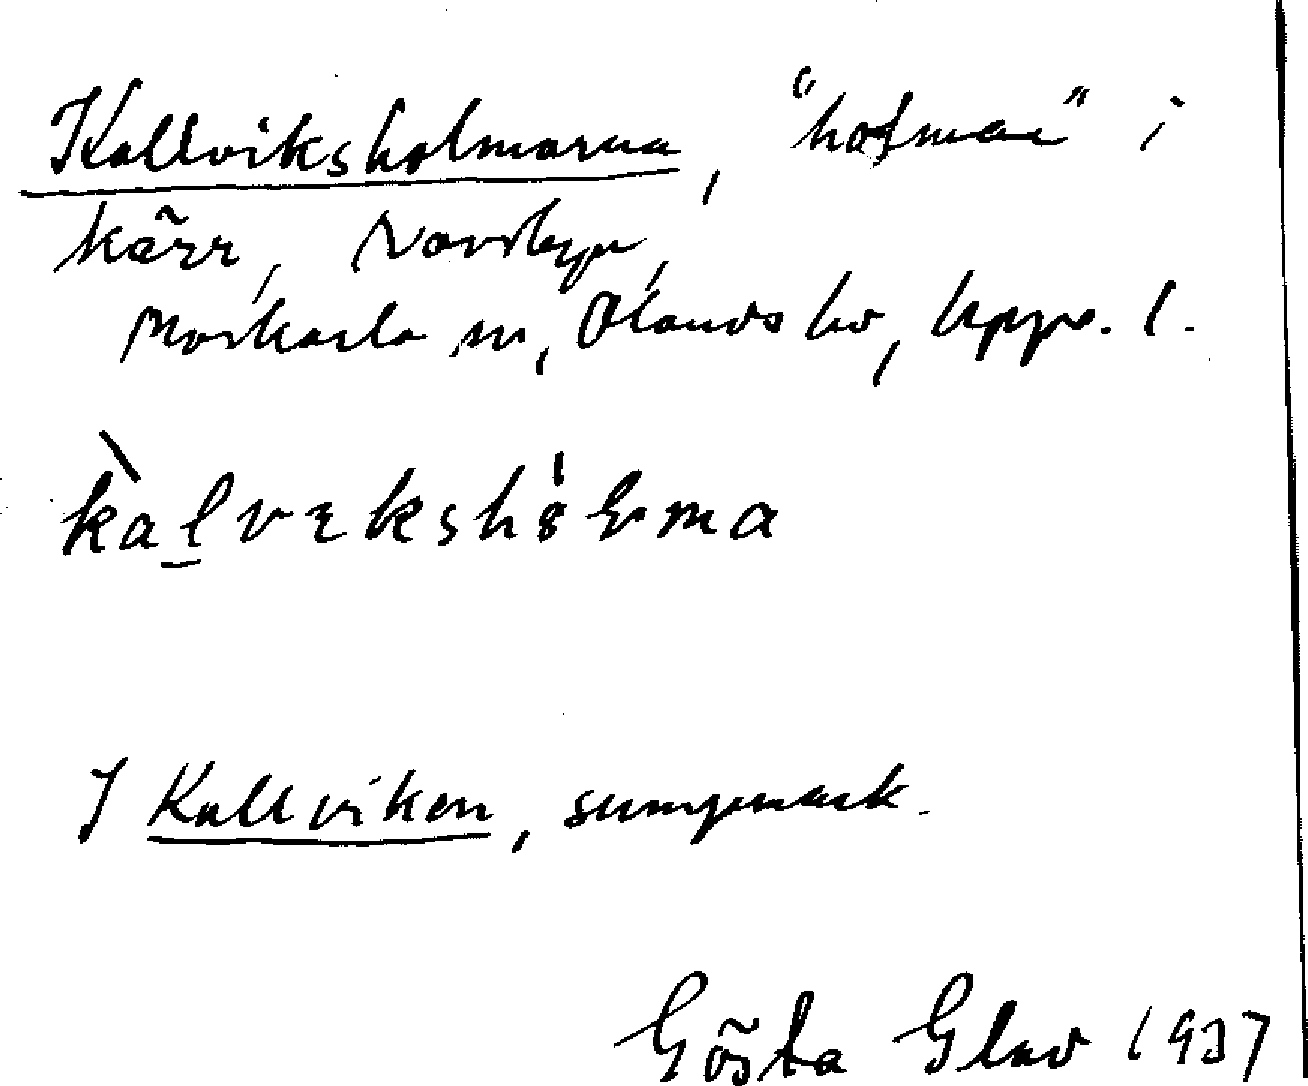 Kallviksholmarna, "holmar" i
kärr, Norrbyn,
Morkarla sn, Olands hd, Upps. l.
I Kallviken, sumpmark.
Gösta Glad 1937